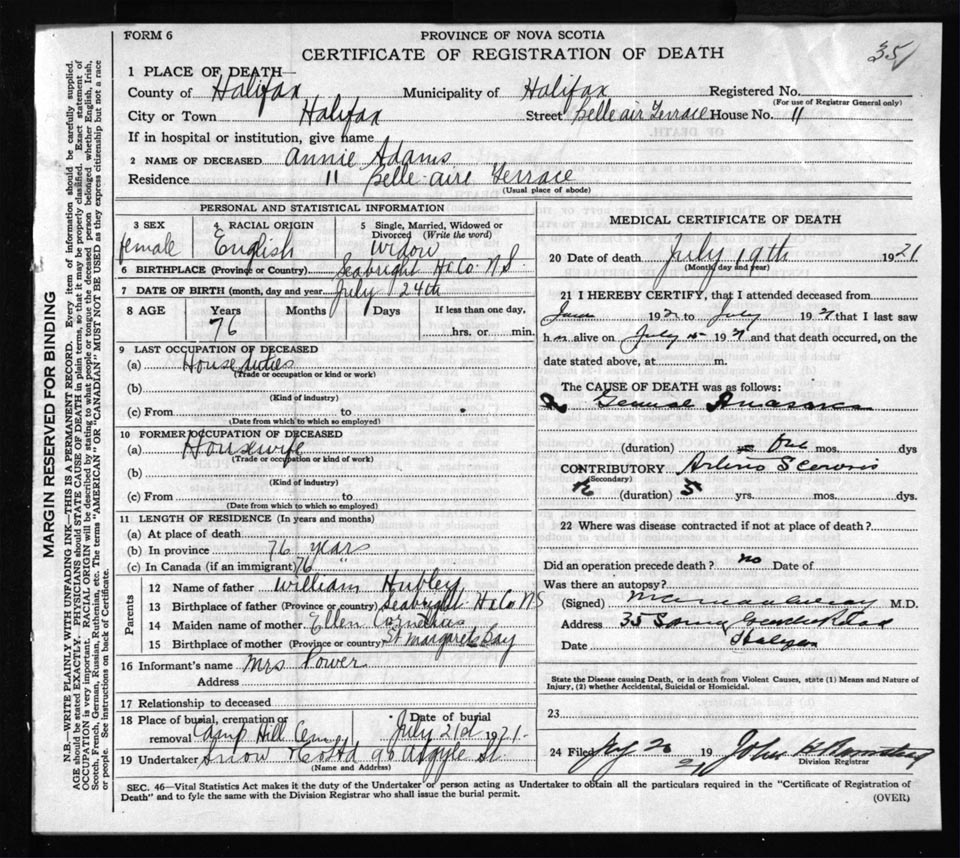 FORM 6
PROVINCE OF NOVA SCOTIA
CERTIFICATE OF REGISTRATION OF DEATH
35
1 PLACE OF DEATH—
County of Halifax Municipality of Halifax Registered No.
(For use of Registrar General only)
City or Town Halifax Street Belle air Terrace House No. 11
If in hospital or institution, give name
2 NAME OF DECEASED Annie Adams
Residence 11 Belle-aire Terrace
(Usual place of abode)
PERSONAL AND STATISTICAL INFORMATION
3 SEX
female
4 RACIAL ORIGIN
English
5 Single, Married, Widowed or Divorced (Write the word)
Widow
6 BIRTHPLACE (Province or Country) Seabright Hx Co. N.S.
7 DATE OF BIRTH (month, day and year) July 24th
8 AGE Years Months Days If less than one day,
76 hrs. or min.
9 LAST OCCUPATION OF DECEASED
(a) House duties
(Trade or occupation or kind or work)
(b)
(Kind of industry)
(c) From to
(Date from which to which so employed)
10 FORMER OCCUPATION OF DECEASED
(a) Housewife
(Trade or occupation or kind or work)
(b)
(Kind of industry)
(c) From to
(Date from which to which so employed)
11 LENGTH OF RESIDENCE (In years and months)
(a) At place of death
(b) In province 76 years
(c) In Canada (if an immigrant) 76 "
Parents
12 Name of father William Hubley
13 Birthplace of father (Province or country) Seabright Hx Co NS
14 Maiden name of mother Ellen Cornelius
15 Birthplace of mother (Province or country) St Margarets Bay
16 Informant's name Mrs Power
Address
17 Relationship to deceased
18 Place of burial, cremation or removal Camp Hill Cem. Date of burial July 21st 1921.
19 Undertaker Snow & Co Ltd 90 Argyle St.
(Name and Address)
MEDICAL CERTIFICATE OF DEATH
20 Date of death July 19th 1921
(Month, day and year)
21 I HEREBY CERTIFY, that I attended deceased from
June 192 to July 192 that I last saw
h alive on July 192 and that death occurred, on the
date stated above, at m.
The CAUSE OF DEATH was as follows:
(duration) yrs. One mos. dys
CONTRIBUTORY Arterio Sclerosis
(Secondary)
(duration) 5 yrs. mos. dys.
22 Where was disease contracted if not at place of death?
Did an operation precede death? no Date of
Was there an autopsy?
(Signed) M.D.
Address 35
Date Halifax
State the Disease causing Death, or in death from Violent Causes, state (1) Means and Nature of Injury, (2) whether Accidental, Suicidal or Homicidal.
23
24 Filed 19 21 John
Division Registrar
SEC. 46—Vital Statistics Act makes it the duty of the Undertaker or person acting as Undertaker to obtain all the particulars required in the "Certificate of Registration of
Death" and to fyle the same with the Division Registrar who shall issue the burial permit.
(OVER)
MARGIN RESERVED FOR BINDING
N.B.—WRITE PLAINLY WITH UNFADING INK—THIS IS A PERMANENT RECORD. Every item of information should be carefully supplied.
AGE should be stated EXACTLY. PHYSICIANS should STATE CAUSE OF DEATH in plain terms, so that it may be properly classified. Exact statement of
OCCUPATION is very important. RACIAL ORIGIN will be described by stating to what people or tongue the deceased person belonged whether English, Irish,
Scotch, French, German, Russian, Ruthenian, etc. The terms "AMERICAN" or "CANADIAN" MUST NOT BE USED as they express citizenship but not a race
or people. See instructions on back of Certificate.